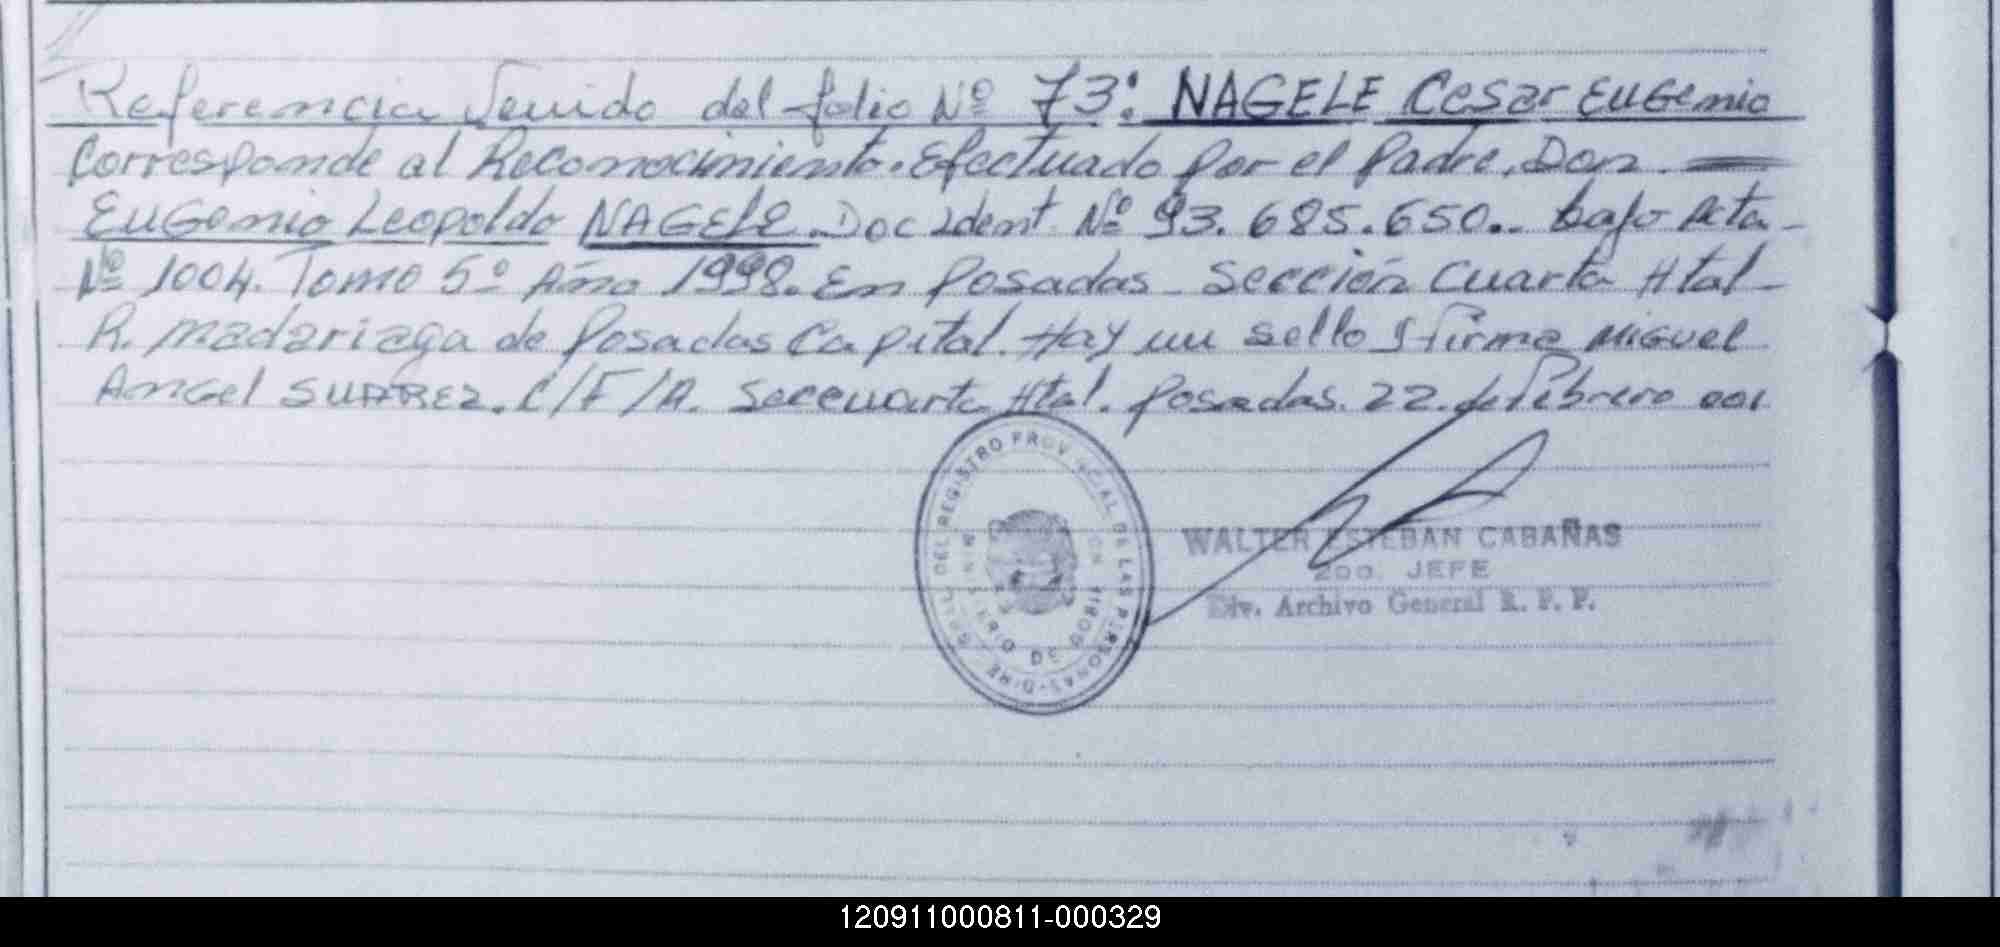 Referencia Venido del folio Nº 73: NAGELE Cesar Eugenio
Corresponde al Reconocimiento. Efectuado por el Padre, Don
Eugenio Leopoldo NAGELE. Doc Ident. Nº 93.685.650.. bajo Acta
Nº 1004. Tomo 5º Año 1998. En Posadas - Sección Cuarta Htal
R. Madariaga de Posadas Capital. Hay un sello y firma Miguel
Angel SUAREZ. C/F/A. Sec cuarta Htal. Posadas. 22. de Febrero 001
GRAL. DEL REGISTRO PROVINCIAL DE LAS PERSONAS-DIREC
MINISTERIO DE GOBIERNO
WALTER ESTEBAN CABAÑAS
2DO. JEFE
Div. Archivo General R. P. P.
120911000811-000329